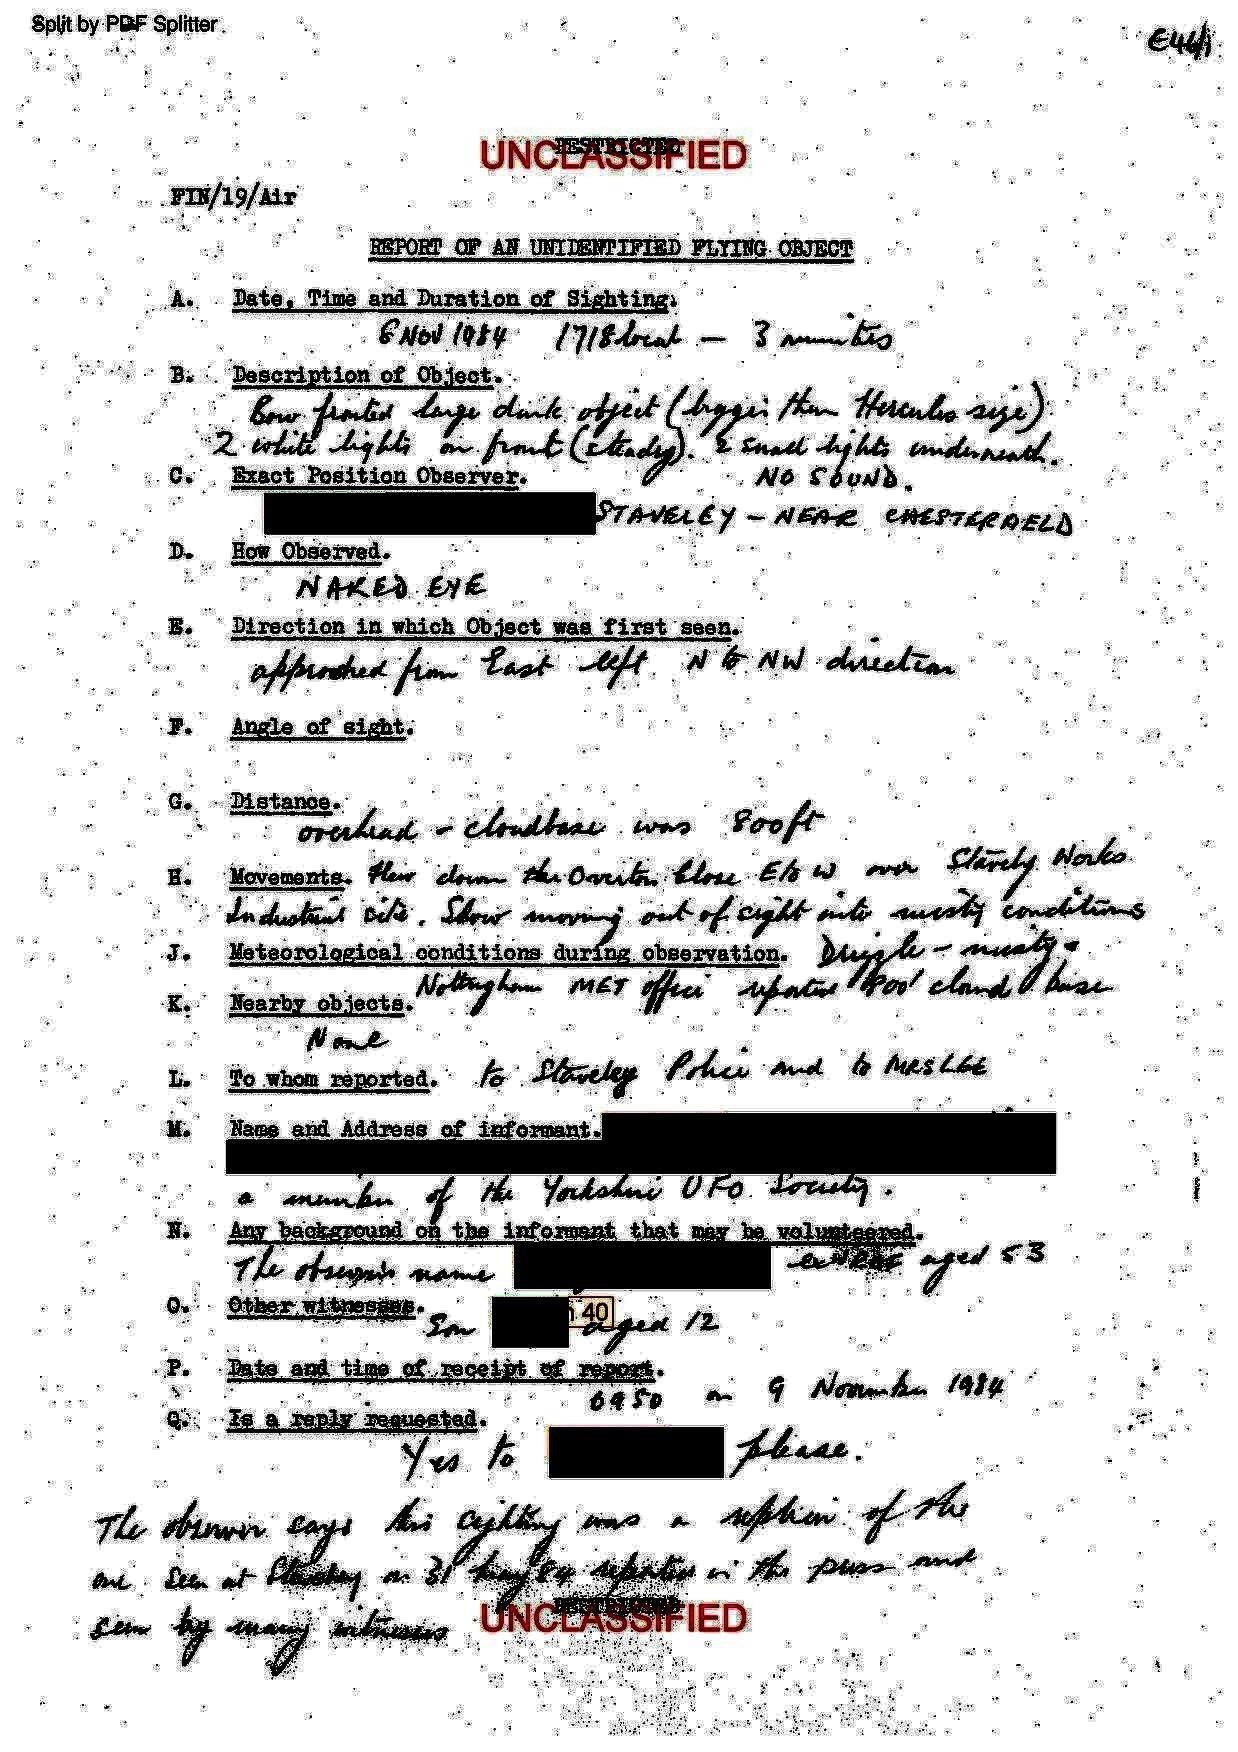 Split by PDF Splitter
E46/1
UNCLASSIFIED
RESTRICTED
FIN/19/Air
REPORT OF AN UNIDENTIFIED FLYING OBJECT
A. Date, Time and Duration of Sighting.
6 NOV 1984 1718 local — 3 minutes
B. Description of Object.
Bow fronted large dark object (bigger than Hercules size)
2 white lights on front (steady). 2 small lights underneath.
C. Exact Position Observer. NO SOUND.
STAVELEY - NEAR CHESTERFIELD
D. How Observed.
NAKED EYE
E. Direction in which Object was first seen.
approched from East left N to NW direction
F. Angle of sight.
G. Distance.
overhead - cloudbase was 800ft
H. Movements. Flew down the Overton Close E to W over Stavely Works
Industrial site. Slow moving out of sight into misty conditions
J. Meteorological conditions during observation. Drizzle - misty.
Nottingham MET office reported 800' cloud base
K. Nearby objects.
None
L. To whom reported. to Staveley Police and to MRS LEE
M. Name and Address of informant.
a member of the Yorkshire UFO Society.
N. Any background on the informant that may be volunteered.
The observers name ex RAF aged 53
O. Other witnesses.
Son 40 aged 12
P. Date and time of receipt of report.
0950 on 9 November 1984
Q. Is a reply requested.
Yes to please.
The observer says this sighting was a of the
one seen at Staveley on 31 May 84 reported in the press and
seen by many witnesses
RESTRICTED
UNCLASSIFIED